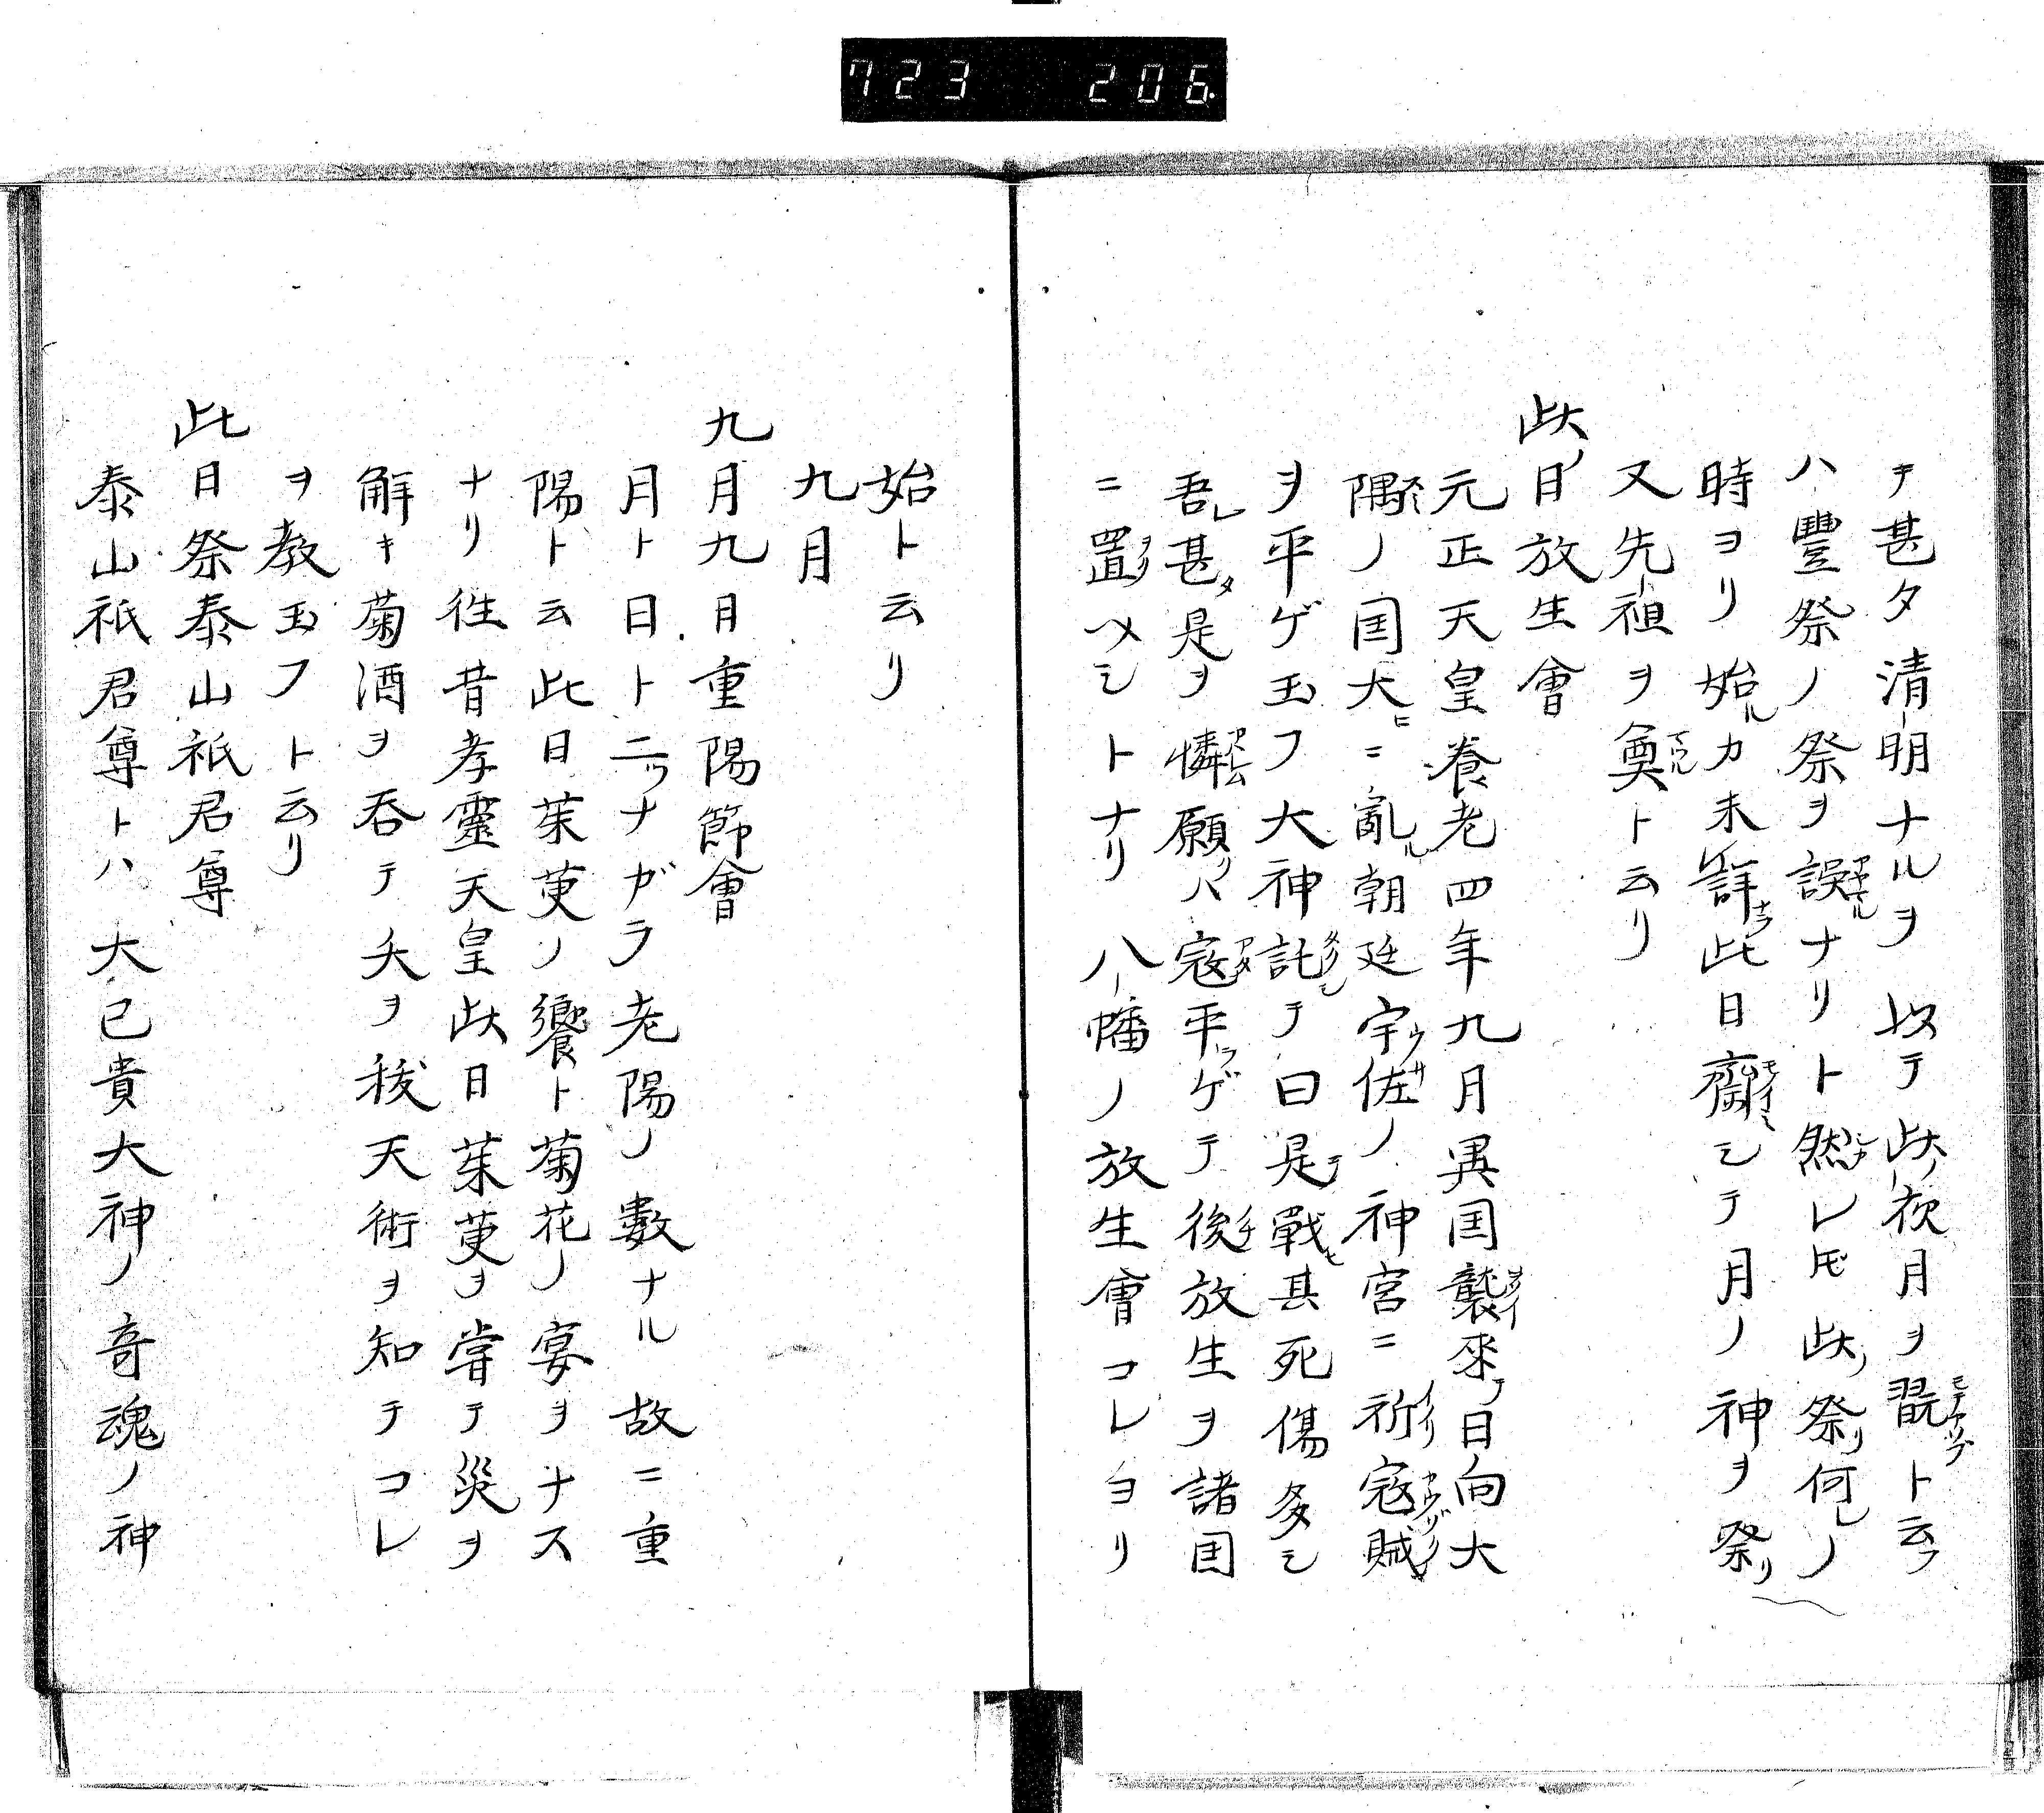 723 206
テ甚タ清明ナルヲ以テ此ノ夜月ヲ翫モテアソブト云フ
ハ豐祭ノ祭ヲ誤アヤマルナリト然シカレ𪜈此ノ祭リ何レノ
時ヨリ始ルカ未詳ナラ此日齋モノイミシテ月ノ神ヲ祭リ
又先祖ヲ奠マツルト云リ
此ノ日放生會
元正天皇養老四年九月異国襲ヲソイ來テ日向大
隅スミノ国大ニ亂ル朝廷宇佐ウサノ神宮ニ祈イノリ寇賊
ヲ平ゲ玉フ大神託タクシテ曰是テ戰ヒ其死傷多シ
吾レ甚タ是ヲ憐アハレム願クハ寇アタ平ラゲテ後ノチ放生ヲ諸国
ニ置ヲカシメントナリ八幡ノ放生會コレヨリ
始ト云リ
九月
九月九日重陽節會
月ト日ト二ツナガラ老陽ノ數ナル故ニ重
陽ト云此日茱萸ノ饗ト菊花ノ宴ヲナス
ナリ徃昔孝靈天皇此日茱萸ヲ嘗テ災ヲ
解キ菊酒ヲ呑テ夭ヲ秡天術ヲ知テコレ
ヲ教玉フト云リ
此日祭泰山祇君尊
泰山祇君尊トハ大已貴大神ノ奇魂ノ神